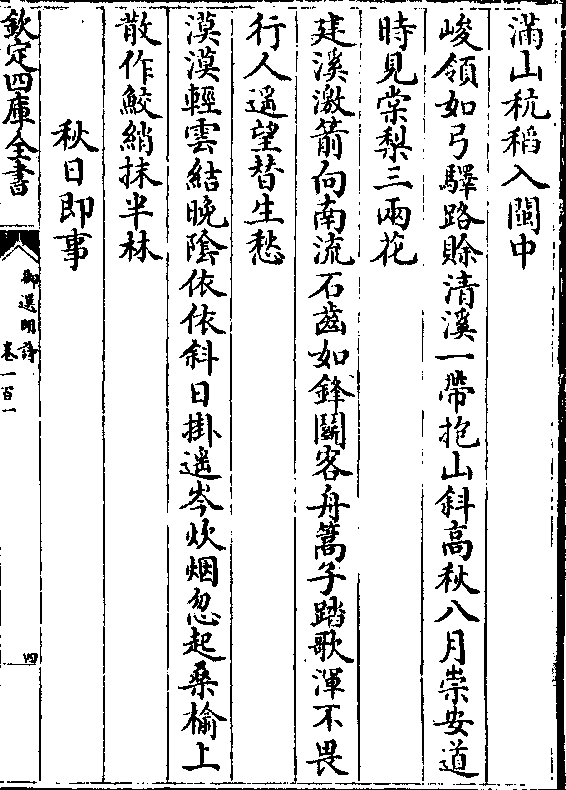 滿山秔稻入閩中
峻嶺如弓驛路賒清溪一帶抱山斜高秋八月崇安道
時見棠梨三兩花
建溪激箭向南流石齒如鋒鬭客舟篙子踏歌渾不畏
行人遥望替生愁
漠漠輕雲結晚陰依依斜日掛遥岑炊烟忽起桑榆上
散作鮫綃抹半林
秋日即事
欽定四庫全書
御選明詩
卷一百一
四